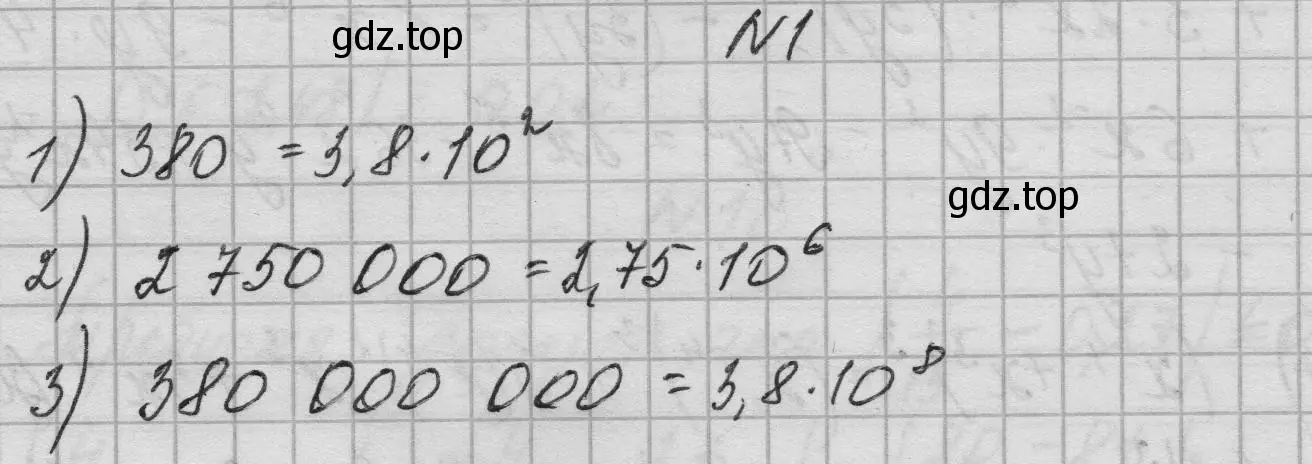 gdz.top
N1
1) 380 = 3,8·10²
gdz.top
2) 2 750 000 = 2,75·10⁶
3) 380 000 000 = 3,8·10⁸